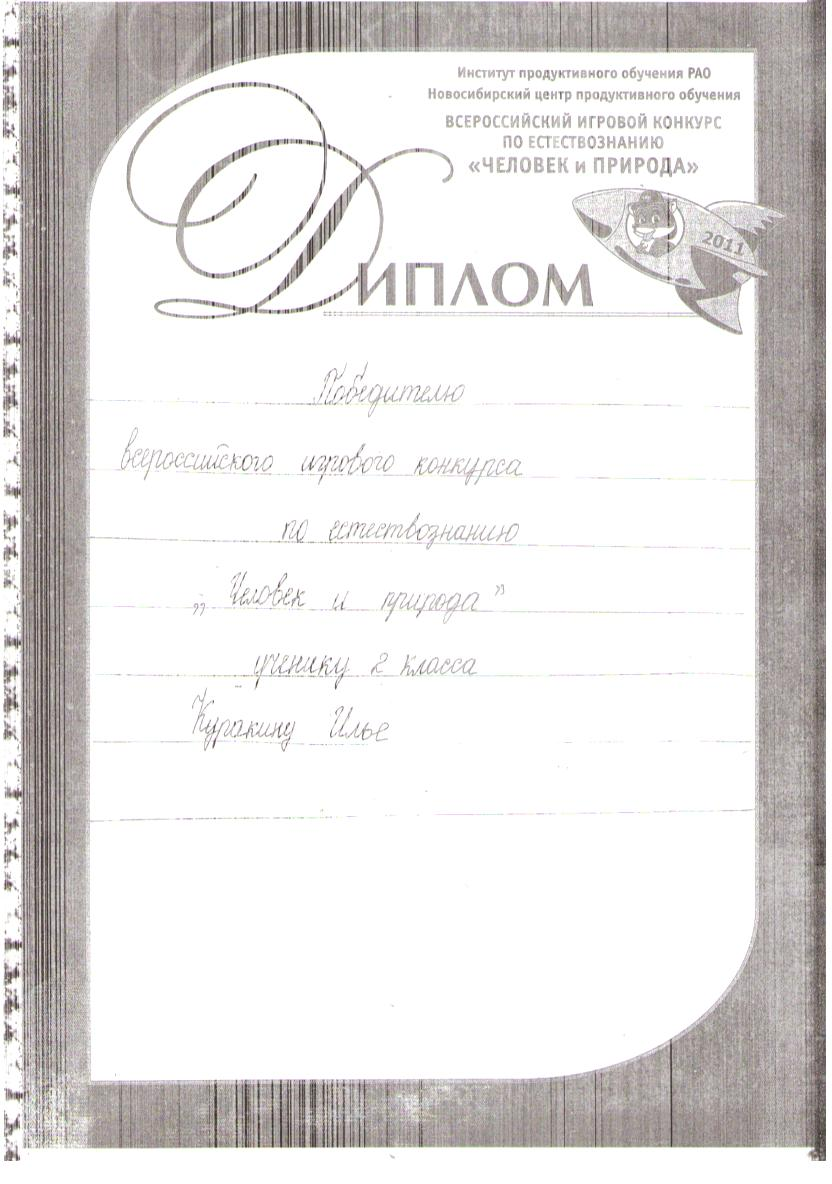 Институт продуктивного обучения РАО
Новосибирский центр продуктивного обучения
ВСЕРОССИЙСКИЙ ИГРОВОЙ КОНКУРС
ПО ЕСТЕСТВОЗНАНИЮ
«ЧЕЛОВЕК и ПРИРОДА»
2011
ДИПЛОМ
Победителю
всероссийского игрового конкурса
по естествознанию
„Человек и природа”
ученику 2 класса
Куракину Илье